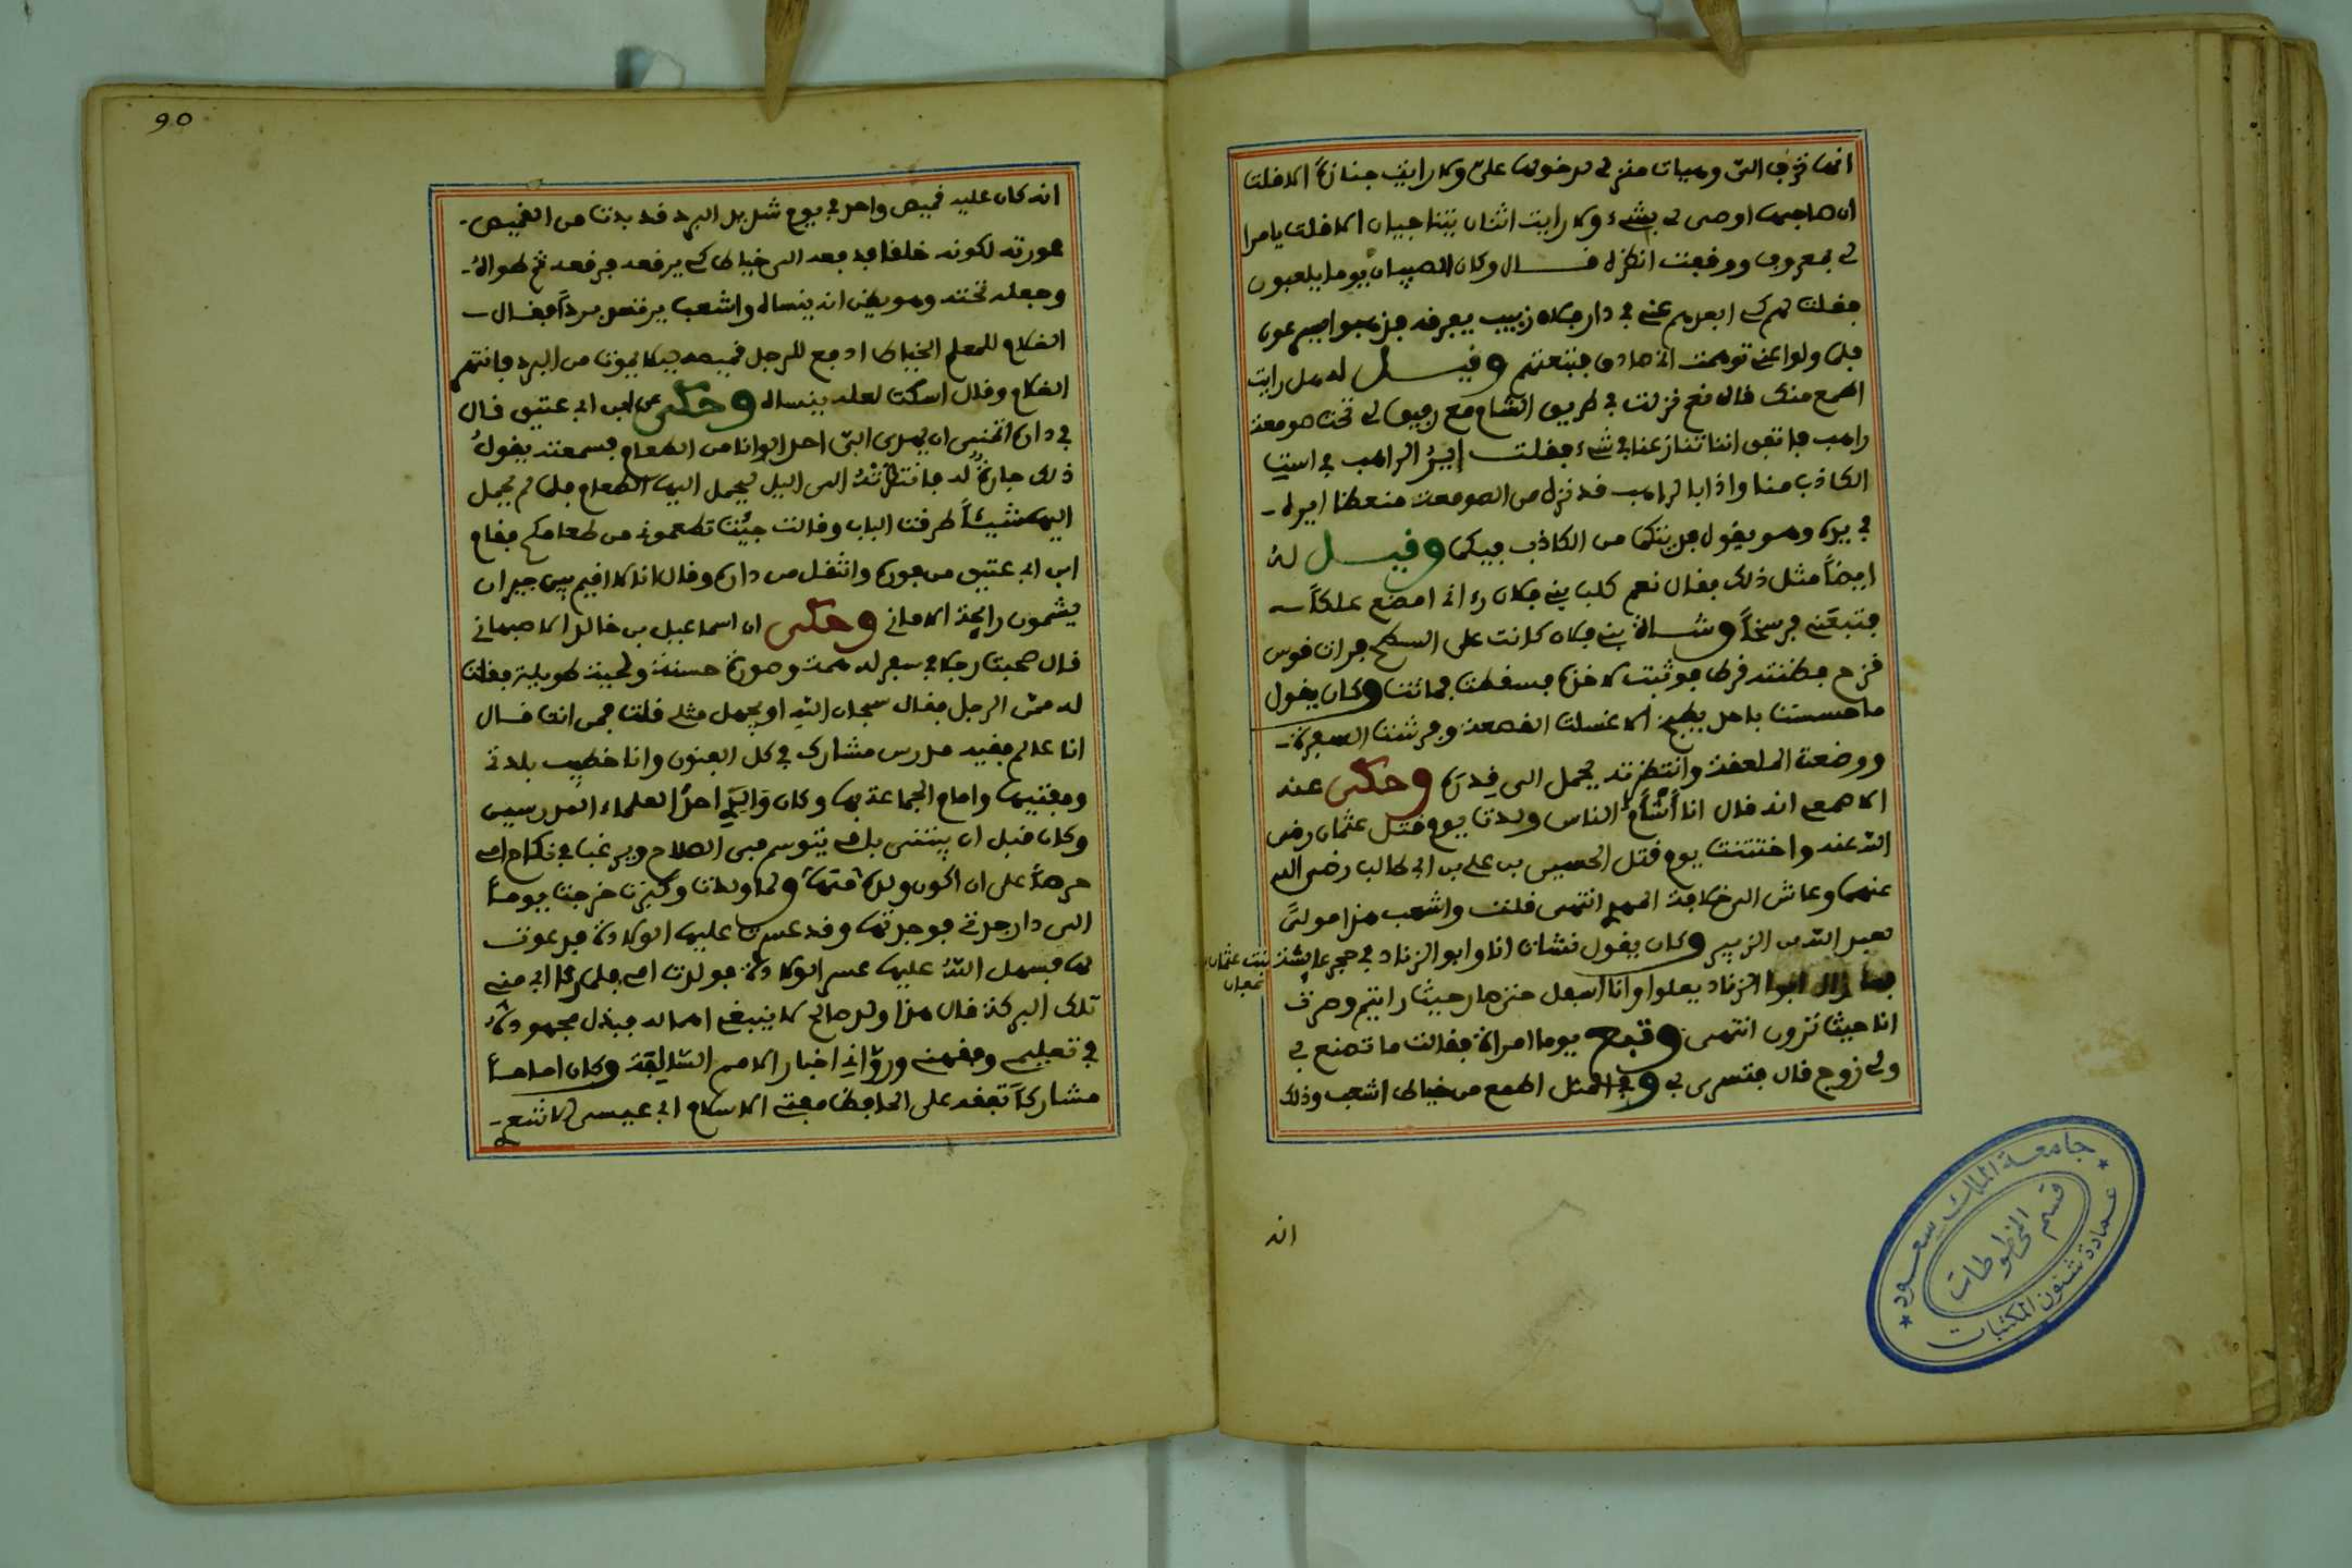 انها تزف الي وهيات منزلي لدخولها علي ولا رايت جنازة الا قلت
ان صاحبها اوصى لي بشيء ولا رايت اثنان يتناجيان الا قلت يامرا
لي بمعروف ووقفت انظره قال وكان الصبيان يوما يلعبون
فقلت لهم كي ابعدهم عني في دار فلان زبيب يفرقه فذهبوا يهرعون
فلما ولوا عني توهمت اني صادق فتبعتهم وقيل له هل رايت
اطمع منك قال نعم نزلت في طريق الشام مع رفيق لي تحت صومعة
راهب فاتفق اننا تنازعنا في شيء فقلت اير الراهب في است
الكاذب منا واذا بالراهب قد نزل من الصومعة منعظا ايره
في يده وهو يقول فديتكما من الكاذب فيكما وقيل له
ايضا مثل ذلك فقال نعم كلب بني فلان رءاني امضغ علكا
فتبعني فرسخا وشاة بني فلان كانت على السطح فرات قوس
قزح فظنته قرط فوثبت لاخذه فسقطت فماتت وكان يقول
ما حسست باحد يطبخ الا غسلت القصعة وفرشت السفرة
ووضعت الملعقة وانتظرته يحمل الى قدره وحكى عنه
الاصمعي انه قال انا أشأم الناس ولدت يوم قتل عثمان رضي
الله عنه واختتنت يوم قتل الحسين بن علي بن ابي طالب رضي الله
عنهما وعاش الى خلافة المهدي انتهى قلت واشعب هذا مولى
لعبد الله بن الزبير وكان يقول نشات انا وابو الزناد في حجر عايشة بنت عثمان بن
عفان
فما زال ابوا الزناد يعلوا وانا اسفل حتى صار حيث رايتم وصرت
انا حيث ترون انتهى وتبع يوما امراة فقالت ما تصنع بي
ولي زوج قال فتسرى بي وفي المثل اطمع من خياط اشعب وذلك
انه
90
انه كان عليه قميص واحد في يوم شديد البرد قد بدت من القميص
عورته لكونه خلقا فدفعه الى خياط كي يرقعه فرقعه ثم طواه
وجعله تحته وهو يظن انه ينساه واشعب يرتعد بردا فقال
الغلام للمعلم الخياط ادفع للرجل قميصه ليلا يموت من البرد فانتهر
الغلام وقال اسكت لعله ينساه وحكى عن ابن ابي عتيق قال
في داره اتمنى ان يهدى الي احد الوانا من الطعام فسمعته يقول
ذلك جارة له فانتظرته الى اليل ليحمل اليها الطعام فلما لم يحمل
اليها شيئا طرقت الباب وقالت جيت تطعموني من طعامكم فقام
ابن ابي عتيق من فوره وانتقل من داره وقال انا لا اقيم بين جيران
يشمون رايحة الاماني وحكى ان اسماعيل بن خالد الاصبهاني
قال صحبت رجلا في سفر له همة وصورة حسنة ولحية طويلة فقلت
له ممن الرجل فقال سبحان الله او يجهل مثلي قلت فمن انت قال
انا عالم مفيد مدرس مشارك في كل الفنون وانا خطيب بلدتي
ومفتيها وامام الجماعة بها وكان والدي احد العلماء المدرسين
وكان قبل ان يبتنى بامي يتوسم في الصلاح ويرغب في نكاح امي
حرصا على ان اكون ولده منها ولما ولدت وكبرت خرجت يوما
الى دار جدتي فوجدتها وقد عسرت عليها الولادة فدعوت
لها فسهل الله عليها عسر الولادة فولدت امي فلما رءا ابي مني
تلك البركة قال هذا ولد صالح لا ينبغي اهماله فبذل مجهوده
في تعليمي وفهمني ورواني اخبار الامم السابقة وكان اماما
مشاركا تفقه على الحافظ مفتي الاسلام ابي عيسى الاشعـ
جامعة الملك سعود
قسم المخطوطات
عمادة شئون المكتبات